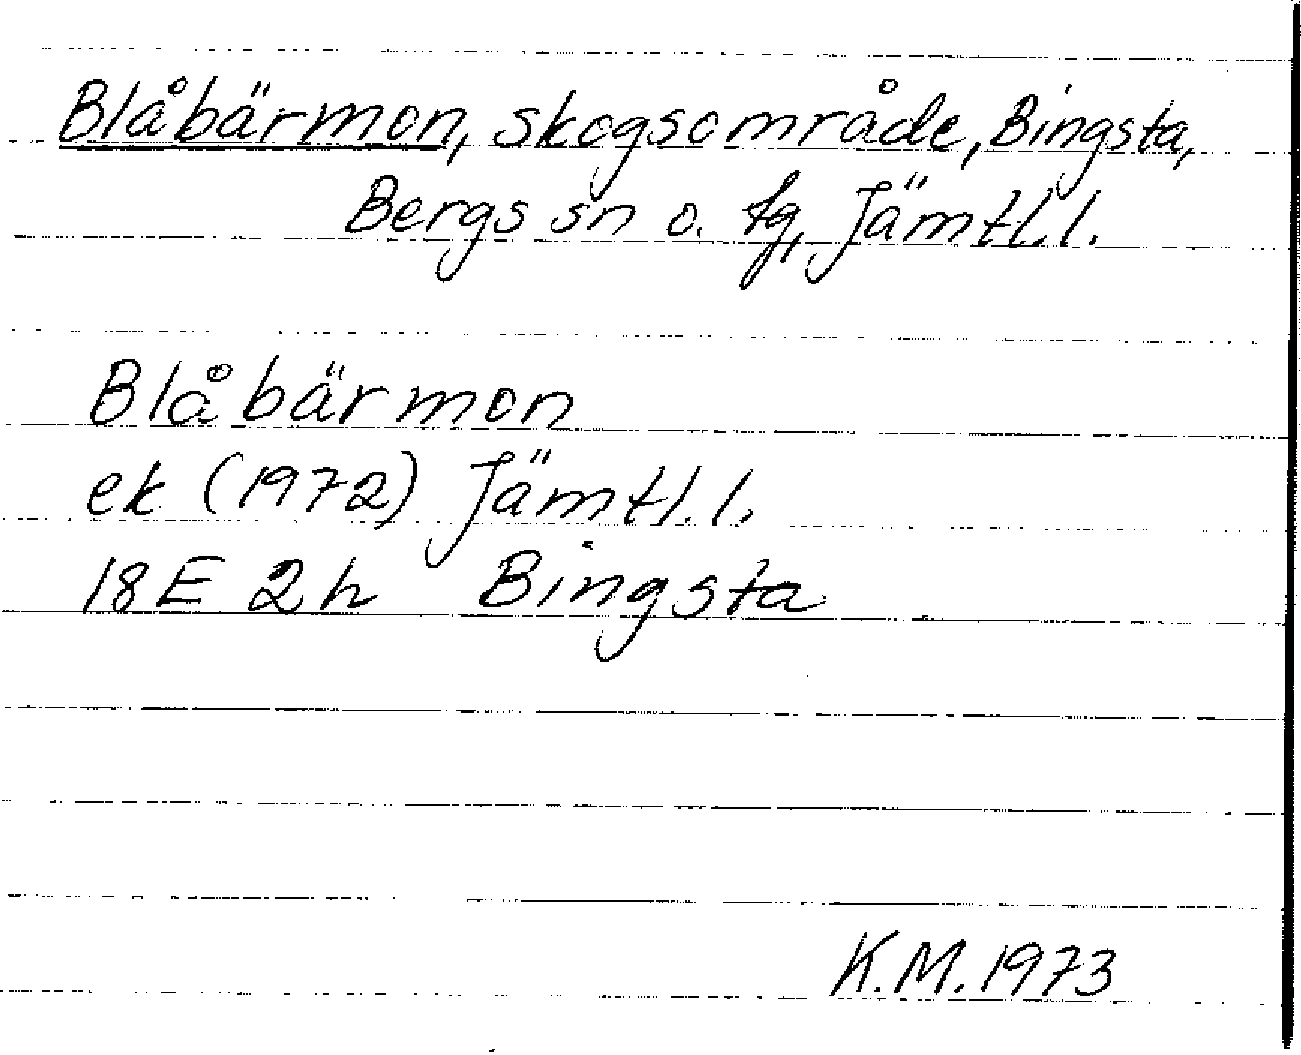 Blåbärmon, skogsområde, Bingsta,
Bergs sn o. tg, Jämtl.l.
Blåbärmon
ek (1972) Jämtl.l.
18E 2h Bingsta
K.M. 1973